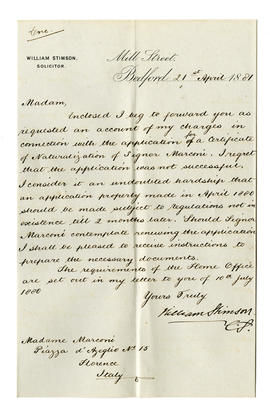 Encre
WILLIAM STIMSON,
SOLICITOR.
Mill Street,
Bedford 21st April 1881
Madam,
Inclosed I beg to forward you as
requested an account of my charges in
connection with the application for a Certificate
of Naturalization of Signor Marconi. I regret
that the application was not successful.
I consider it an undoubted hardship that
an application properly made in April 1880
should be made subject to regulations not in
existence till 2 months later. Should Signor
Marconi contemplate renewing the application
I shall be pleased to receive instructions to
prepare the necessary documents.
The requirements of the Home Office
are set out in my letter to you of 10th July
1880
Yours Truly
William Stimson
Madame Marconi
Piazza d'Azeglio No 15
Florence
Italy